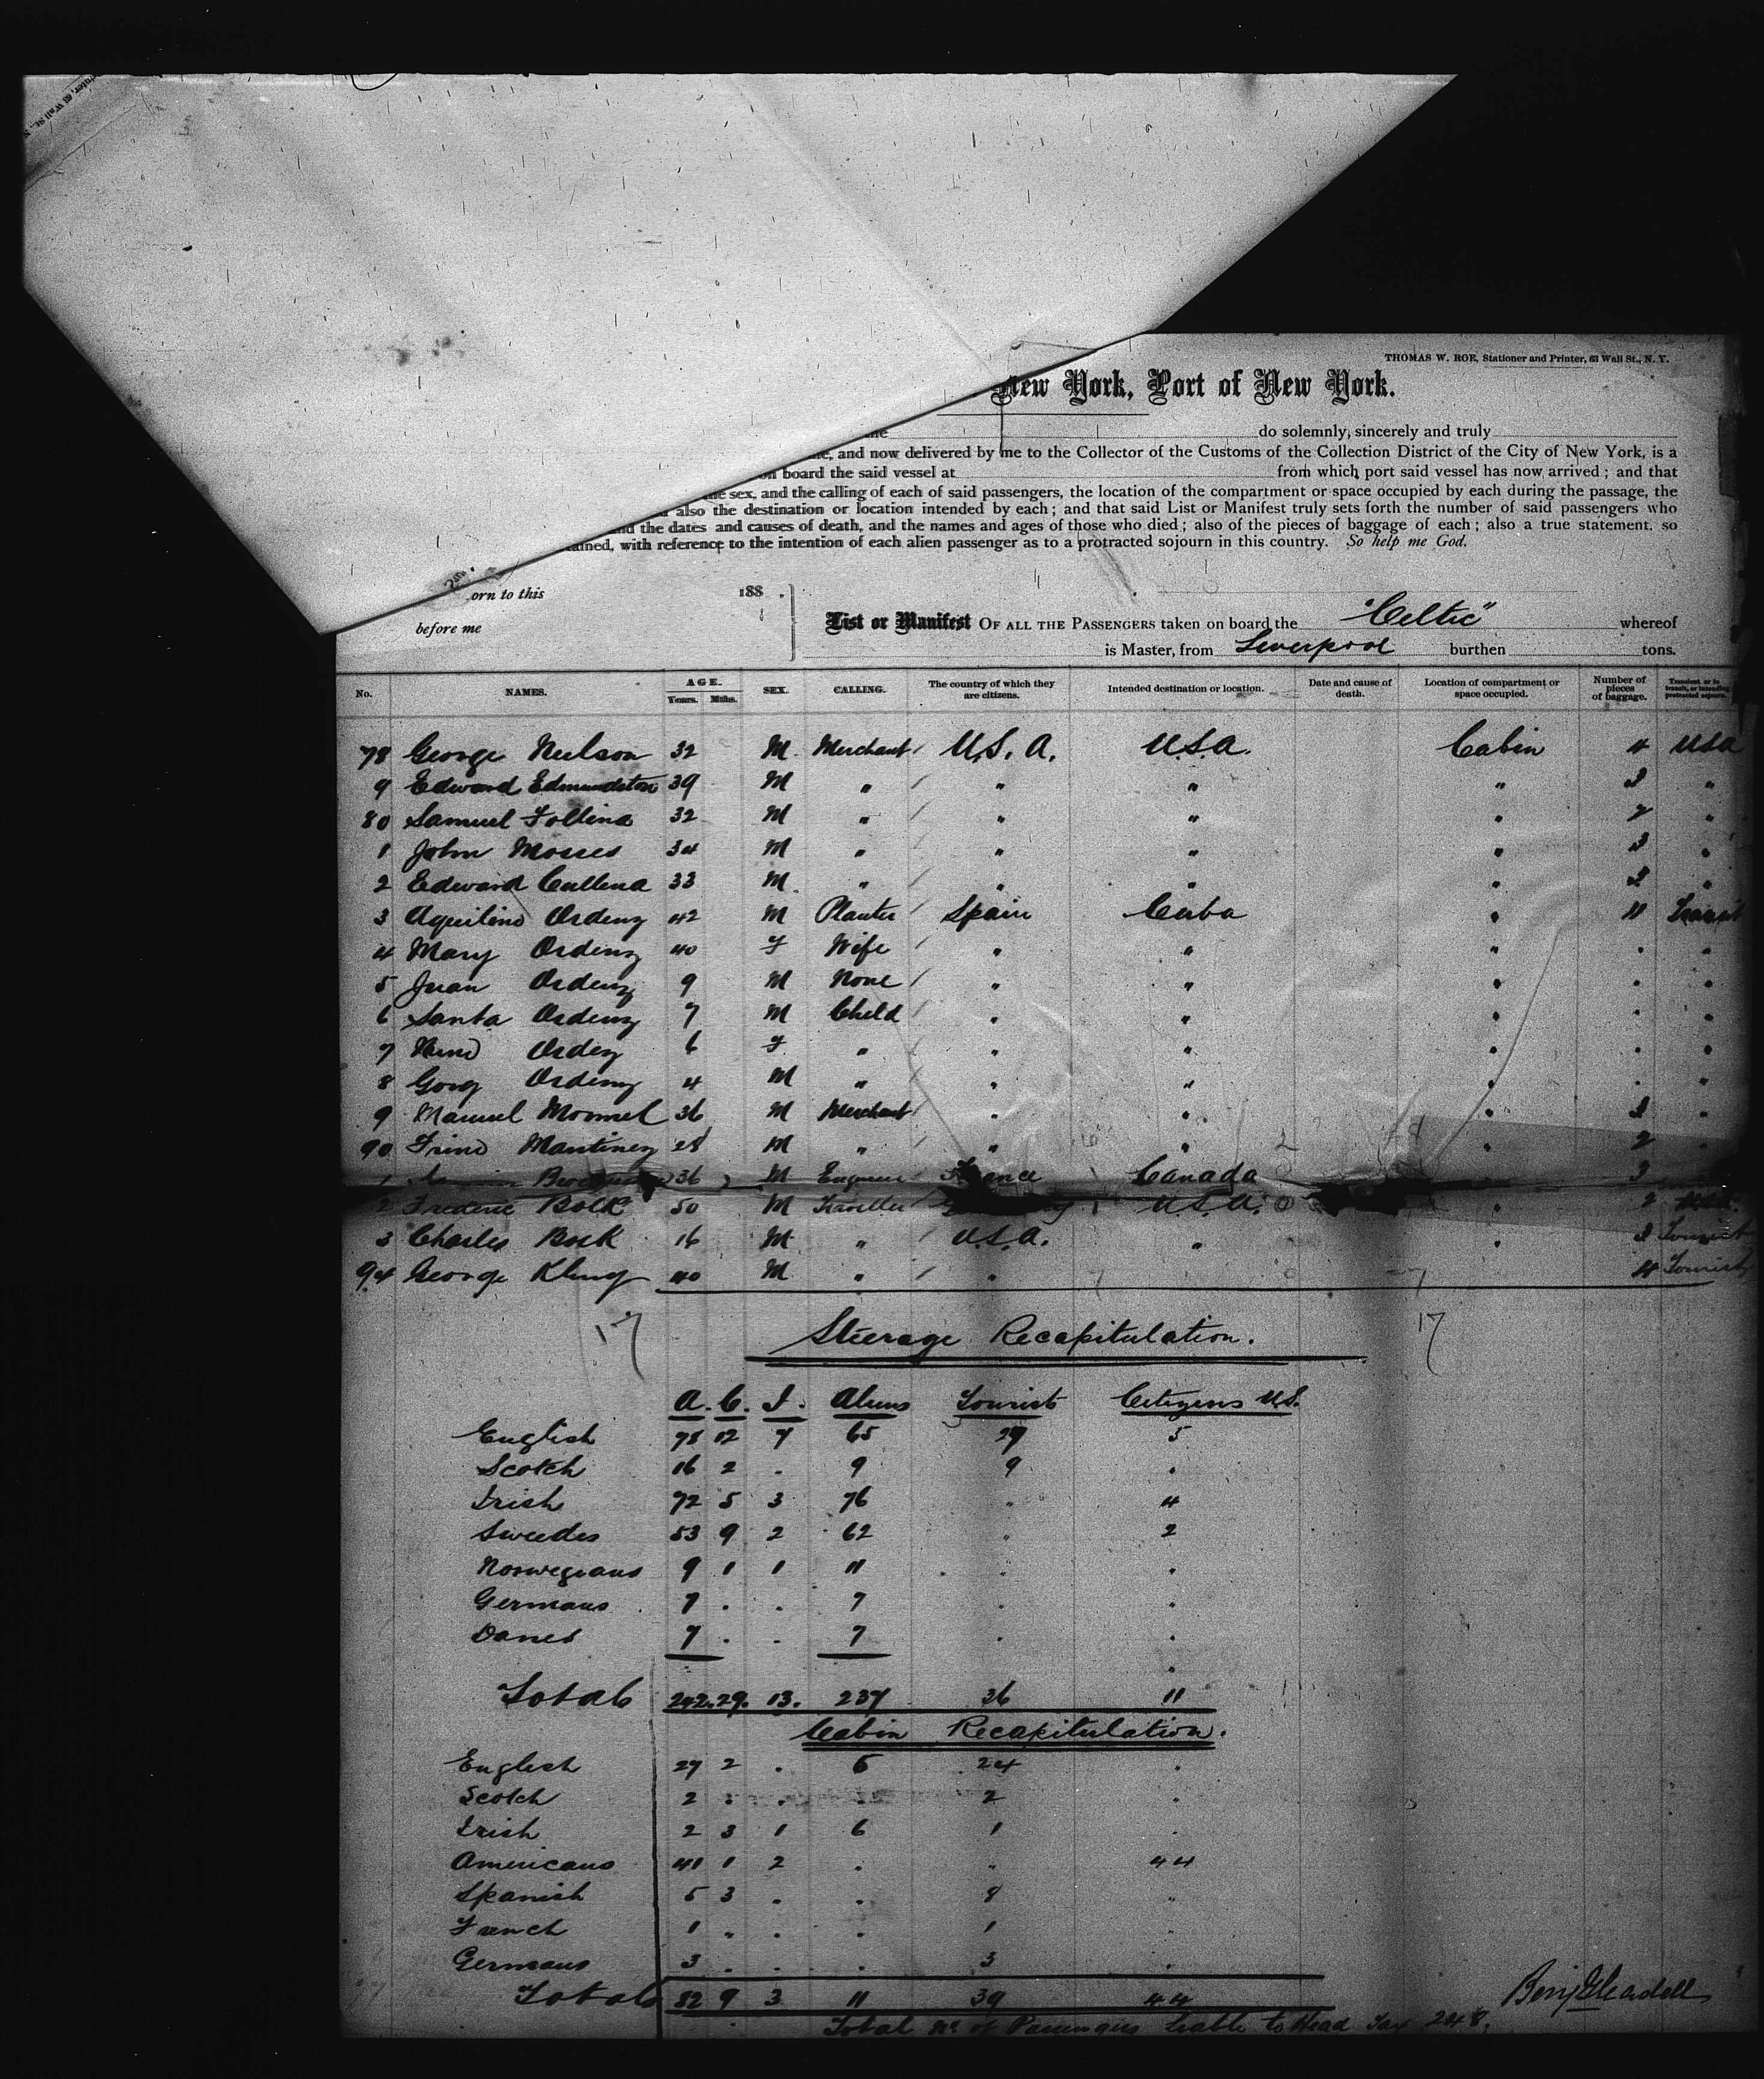 THOMAS W. ROE, Stationer and Printer, 63 Wall St., N. Y.
New York, Port of New York.
do solemnly, sincerely and truly
and now delivered by me to the Collector of the Customs of the Collection District of the City of New York, is a
on board the said vessel at from which port said vessel has now arrived; and that
the sex, and the calling of each of said passengers, the location of the compartment or space occupied by each during the passage, the
also the destination or location intended by each; and that said List or Manifest truly sets forth the number of said passengers who
the dates and causes of death, and the names and ages of those who died; also of the pieces of baggage of each; also a true statement, so
with reference to the intention of each alien passenger as to a protracted sojourn in this country. So help me God.
orn to this 188 .
before me
List or Manifest OF ALL THE PASSENGERS taken on board the "Celtic" whereof
is Master, from Liverpool burthen tons.
No. NAMES. AGE. Years. Mths. SEX. CALLING. The country of which they are citizens. Intended destination or location. Date and cause of death. Location of compartment or space occupied. Number of pieces of baggage. Transient or in transit, or intending protracted sojourn.
78 George Neilson 32 M Merchant U.S.A. U.S.A. Cabin 4 USA
9 Edward Edmundston 39 M " " " " 3 "
80 Samuel 32 M " " " " 2 "
1 John Mosses 34 M " " " " 3 "
2 Edward 33 M " " " " 3 "
3 Aquilino Ordenz 42 M Planter Spain Cuba " 11 Transit
4 Mary Ordenz 40 F Wife " " " " "
5 Juan Ordenz 9 M None " " " " "
6 Santa Ordenz 7 M Child " " " " "
7 Ordez 6 F " " " " " "
8 Ordenz 4 M " " " " " "
9 Manuel 36 M Merchant " " " 3 "
90 Mantinez 28 M " " " " 2 "
1 36 M Engineer France Canada " 3
2 Frederic Bock 50 M Traveller U.S.A. " 2
3 Charles Bock 16 M " U.S.A. " " 3 Tourist
94 George Kling 40 M " " 4 Tourist
17 17
Steerage Recapitulation.
A. C. I. Aliens Tourist Citizens U.S.
English 78 12 7 65 27 5
Scotch 16 2 . 9 9 "
Irish 72 5 3 76 " 4
Sweedes 53 9 2 62 " 2
Norwegians 9 1 1 11 " "
Germans 7 . . 7 . "
Danes 7 . . 7 . "
Totals 242. 29. 13. 237 36 11
Cabin Recapitulation.
English 27 2 . 5 24 .
Scotch 2 . . . 2 .
Irish 2 3 1 6 1 .
Americans 41 1 2 . " 44
Spanish 5 3 . . 8 "
French 1 . . . 1
Germans 3 . . . 3 .
Totals 82 9 3 11 39 44
Total No. of Passengers liable to Head Tax 248.
Benj Gleadell